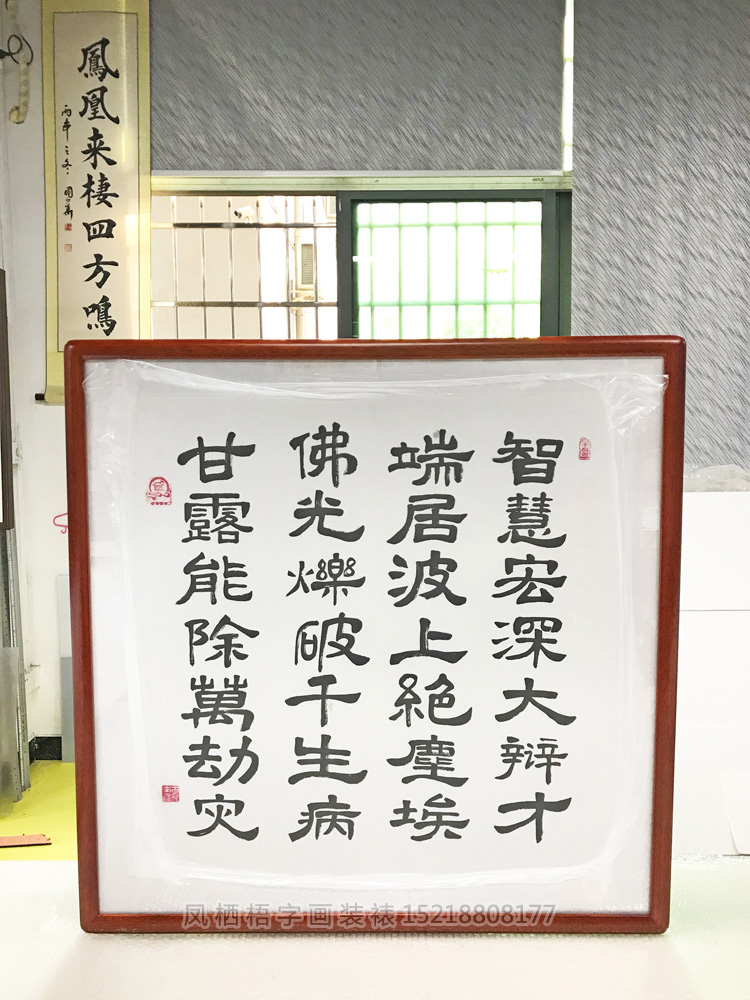 鳳凰来棲四方鳴
智慧宏深大辯才
端居波上絕塵埃
佛光爍破千生病
甘露能除萬劫灾
凤栖梧字画装裱15218808177